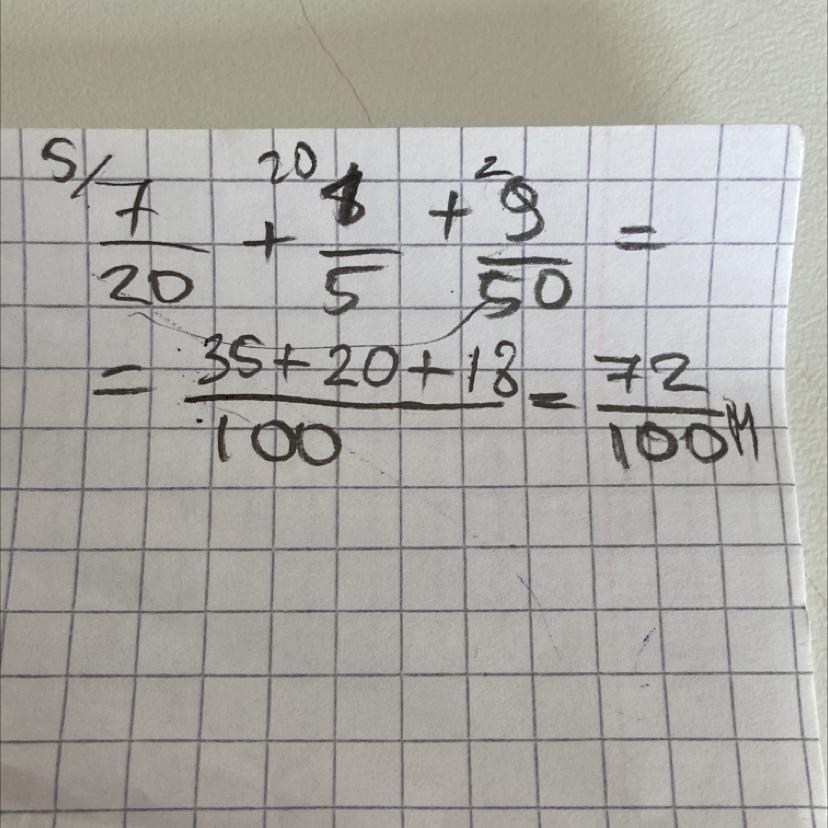 5/ 7/20 + 20 1/5 + 2 9/50 =
= (35+20+18)/100 = 72/100 м